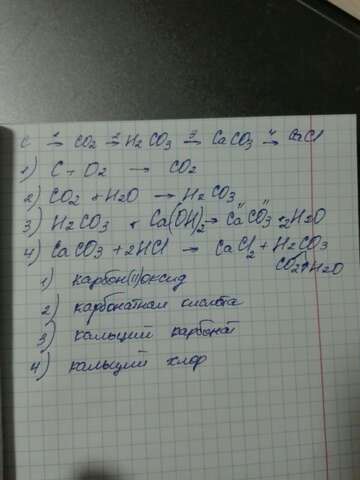 C 1→ CO2 2→ H2CO3 3→ CaCO3 4→ CaCl
1) C + O2 → CO2
2) CO2 + H2O → H2CO3
3) H2CO3 + Ca(OH)2 → CaCO3 + 2H2O
4) CaCO3 + 2HCl → CaCl2 + H2CO3
CO2↑ H2O
1) карбон(II)оксид
2) карбонатная кислота
3) кальций карбонат
4) кальций хлор